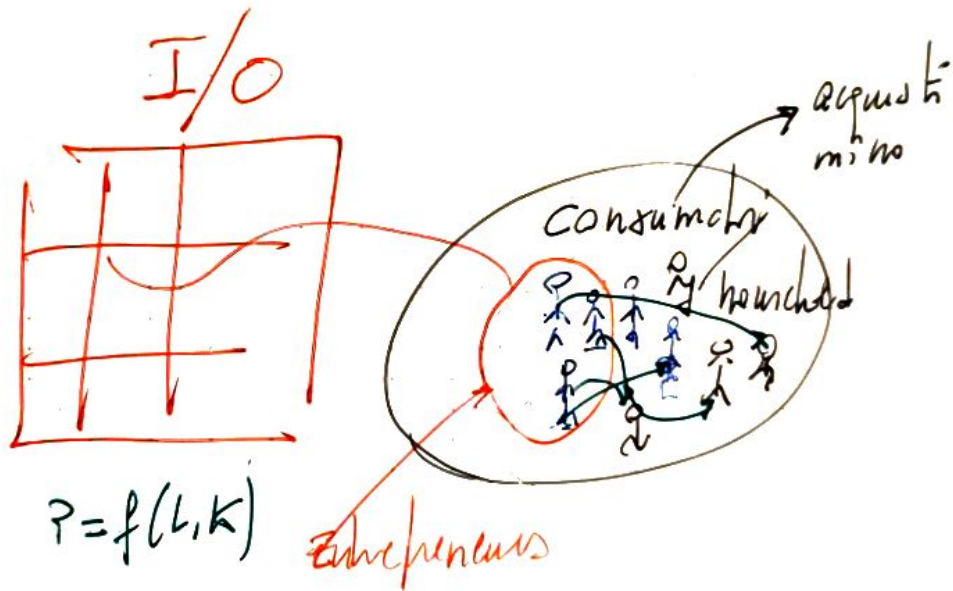 I/O
acquisti
mino
Consumatori
household
P=f(L,K)
Entrepreneurs